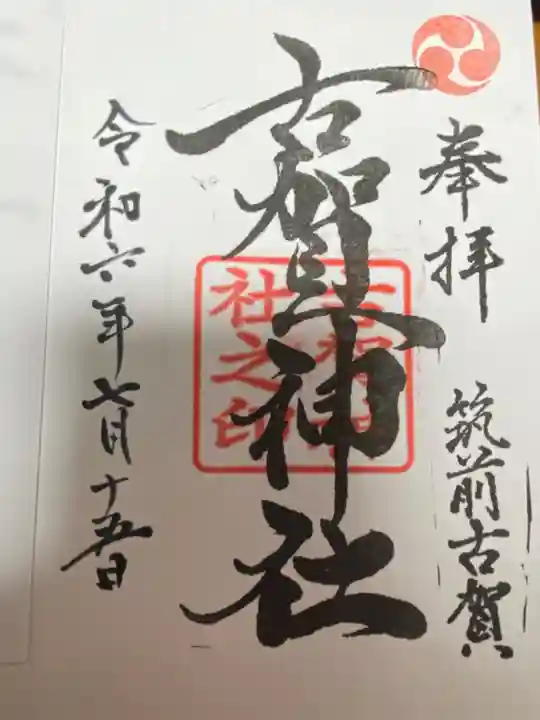 奉拝
筑前古賀
古賀神社
古賀神
社之印
令和六年七月十五日